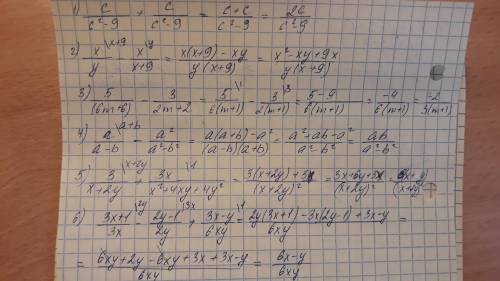 1) c/(c²-9) + c/(c²-9) = (c+c)/(c²-9) = 2c/(c²-9)
2) x\x+9/y - x\y/(x+9) = (x(x+9)-xy)/(y(x+9)) = (x²-xy+9x)/(y(x+9))
3) 5/(6m+6) - 3/(2m+2) = 5\1/(6(m+1)) - 3\3/(2(m+1)) = (5-9)/(6(m+1)) = -4/(6(m+1)) = -2/(3(m+1))
4) a\a+b/(a-b) - a²/(a²-b²) = (a(a+b)-a²)/((a-b)(a+b)) = (a²+ab-a²)/(a²-b²) = ab/(a²-b²)
5) 3\x+2y/(x+2y) + 3x\1/(x²+4xy+4y²) = (3(x+2y)+3x)/(x+2y)² = (3x+6y+3x)/(x+2y)² =
6) (3x+1)\2y/3x - (2y-1)\3x/2y + (3x-y)\1/6xy = (2y(3x+1)-3x(2y-1)+3x-y)/6xy =
= (6xy+2y-6xy+3x+3x-y)/6xy = (6x-y)/6xy